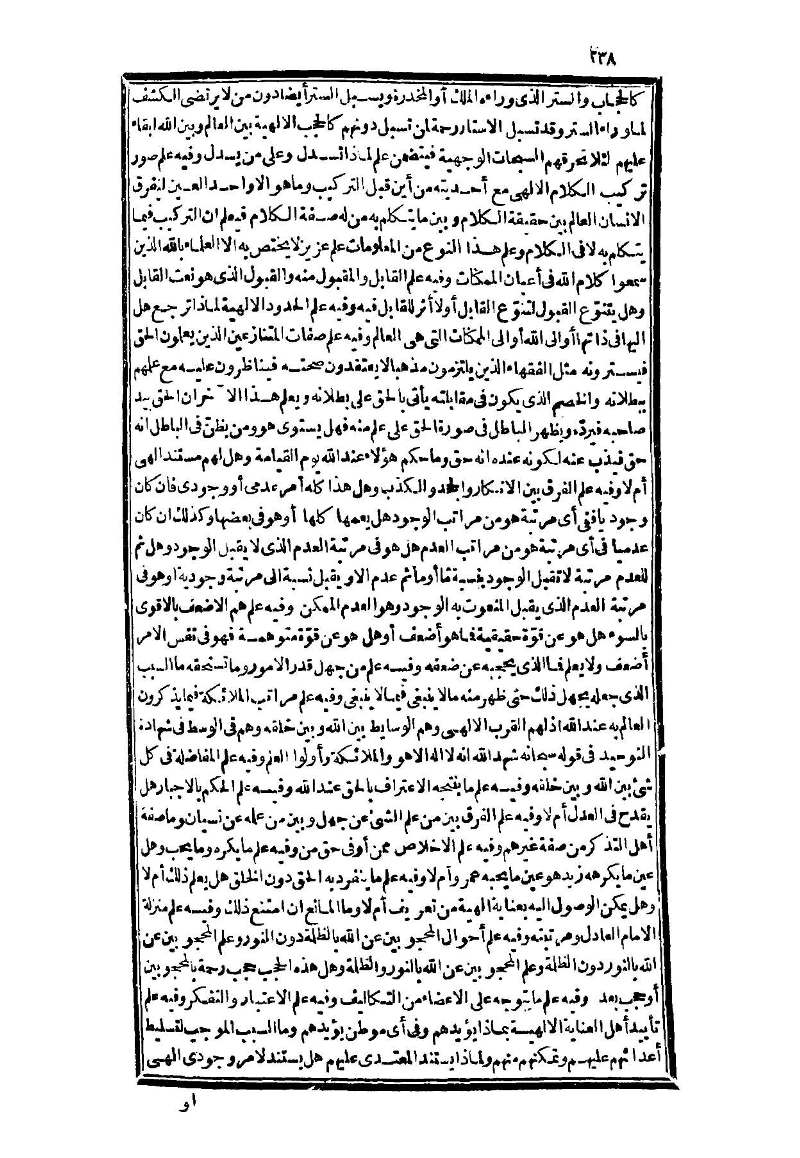 ٣٣٨
كالحجاب والستر الذى وراءه الملك أو المخدرة ويسبل الستر أيضا دون من لا يرتضى الكشف
لما وراء الستر وقد تسبل الاستار رحمة لمن تسبل دونهم كالحجب الالهية بين العالم وبين الله ابقاء
عليهم لئلا تحرقهم السبحات الوجهية فيتضمن علم لماذا تسدل وعلى من يسدل وفيه علم صور
تركيب الكلام الالهى مع أحديته من أين قبل التركيب وما هو الا واحد العين ليفرق
الانسان العالم بين حقيقة الكلام وبين ما يتكلم به من له صفة الكلام فيعلم ان التركيب فيما
يتكلم به لا فى الكلام وعلم هذا النوع من المعلومات علم عزيز لا يختص به الا العلماء بالله الذين
سمعوا كلام الله فى أعيان الممكنات وفيه علم القابل والمقبول منه والقبول الذى هو نعت القابل
وهل يتنوع القبول لتنوع القابل أولا أثر للقابل فيه وفيه علم الحدود الالهية لماذا ترجع هل
اليها فى ذاتها أو الى الله أو الى الممكنات التى هى العالم وفيه علم صفات المتنازعين الذين يعلمون الحق
فيسترونه مثل الفقهاء الذين يلتزمون مذهبا لا يعتقدون صحته فيناظرون عليه مع علمهم
ببطلانه والخصم الذى يكون فى مقابلته يأتى بالحق على بطلانه ويعلم هذا الآخر ان الحق بيد
صاحبه فيرده ويظهر الباطل فى صورة الحق على علم منه فهل يستوى هو ومن يظن فى الباطل انه
حق فيذب عنه لكونه عنده انه حق وما حكم هؤلاء عند الله يوم القيامة وهل لهم مستند الهى
أم لا وفيه علم الفرق بين الانكار والجحد والكذب وهل هذا كله أمر عدمى أو وجودى فان كان
وجوديا ففى أى مرتبة هو من مراتب الوجود هل يعمها كلها أو هو فى بعضها وكذلك ان كان
عدميا فى أى مرتبة هو من مراتب العدم هل هو فى مرتبة العدم الذى لا يقبل الوجود وهل ثم
للعدم مرتبة لا تقبل الوجود بنسبة ما أو ما ثم عدم الا ويقبل نسبة الى مرتبة وجودية أو هو فى
مرتبة العدم الذى يقبل المنعوت به الوجود وهو العدم الممكن وفيه علم هم الاضعف بالاقوى
بالسوء هل هو عن قوة حقيقية فما هو أضعف أو هل هو عن قوة متوهمة فهو فى نفس الامر
أضعف ولا يعلم فما الذى يحجبه عن ضعفه وفيه علم من جهل قدر الامور وما تستحقه ما السبب
الذى جعله يجهل ذلك حتى ظهر منه ما لا ينبغى فيما لا ينبغى وفيه علم مراتب الملائكة فيما يذكرون
العالم به عند الله اذ لهم القرب الالهى وهم الوسايط بين الله وبين خلقه وهم فى الوسط فى شهادة
التوحيد فى قوله سبحانه شهد الله انه لا اله الا هو والملائكة وأولوا العلم وفيه علم المفاضلة فى كل
شئ بين الله وبين خلقه وفيه علم ما ينتجه الاعتراف بالحق عند الله وفيه علم الحكم بالاجبار هل
يقدح فى العدل أم لا وفيه علم الفرق بين من علم الشئ عن جهل وبين من علمه عن نسيان وما صفة
أهل التذكر من صفة غيرهم وفيه علم الاخلاص ممن أوفى حق من وفيه علم ما يكره وما يحب وهل
عين ما يكرهه زيد هو عين ما يحبه عمرو أم لا وفيه علم ما ينفرد به الحق دون الخلق هل يعلم ذلك أم لا
وهل يمكن الوصول اليه بعناية الهية من تعريف أم لا وما المانع ان امتنع ذلك وفيه علم منزلة
الامام العادل ومرتبته وفيه علم أحوال المحجوبين عن الله بالظلمة دون النور وعلم المحجوبين عن
الله بالنور دون الظلمة وعلم المحجوبين عن الله بالنور والظلمة وهل هذه الحجب حجب رحمة بالمحجوبين
أو حجب بعد وفيه علم ما يتوجه على الاعضاء من التكاليف وفيه علم الاعتبار والتفكر وفيه علم
تأييد أهل العناية الالهية بماذا يؤيدهم وفى أى موطن يؤيدهم وما السبب الموجب لتسليط
أعدائهم عليهم وتمكنهم منهم ولماذا يستند المعتدى عليهم هل يستند لامر وجودى الهى
او